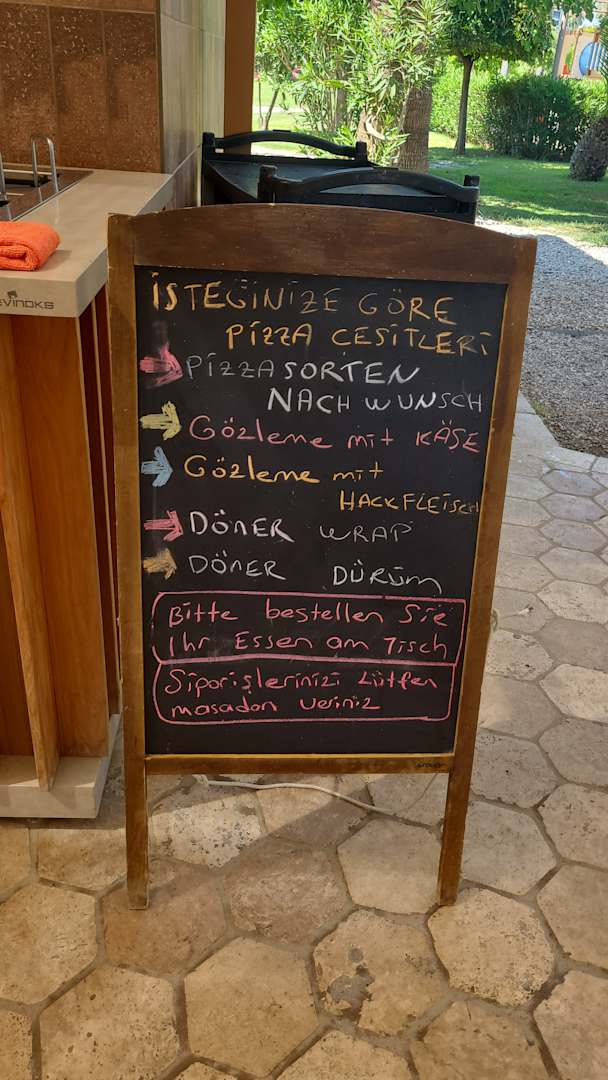 İSTEĞİNİZE GÖRE
PİZZA CESİTLERİ
PİZZA SORTEN
NACH WUNSCH
Gözleme mit KÄŞE
Gözleme mit
HACKFLEISCH
DÖNER WRAP
DÖNER DÜRÜM
Bitte bestellen Sie
Ihr Essen am Tisch
Siparişlerinizi Lütfen
masadan veriniz